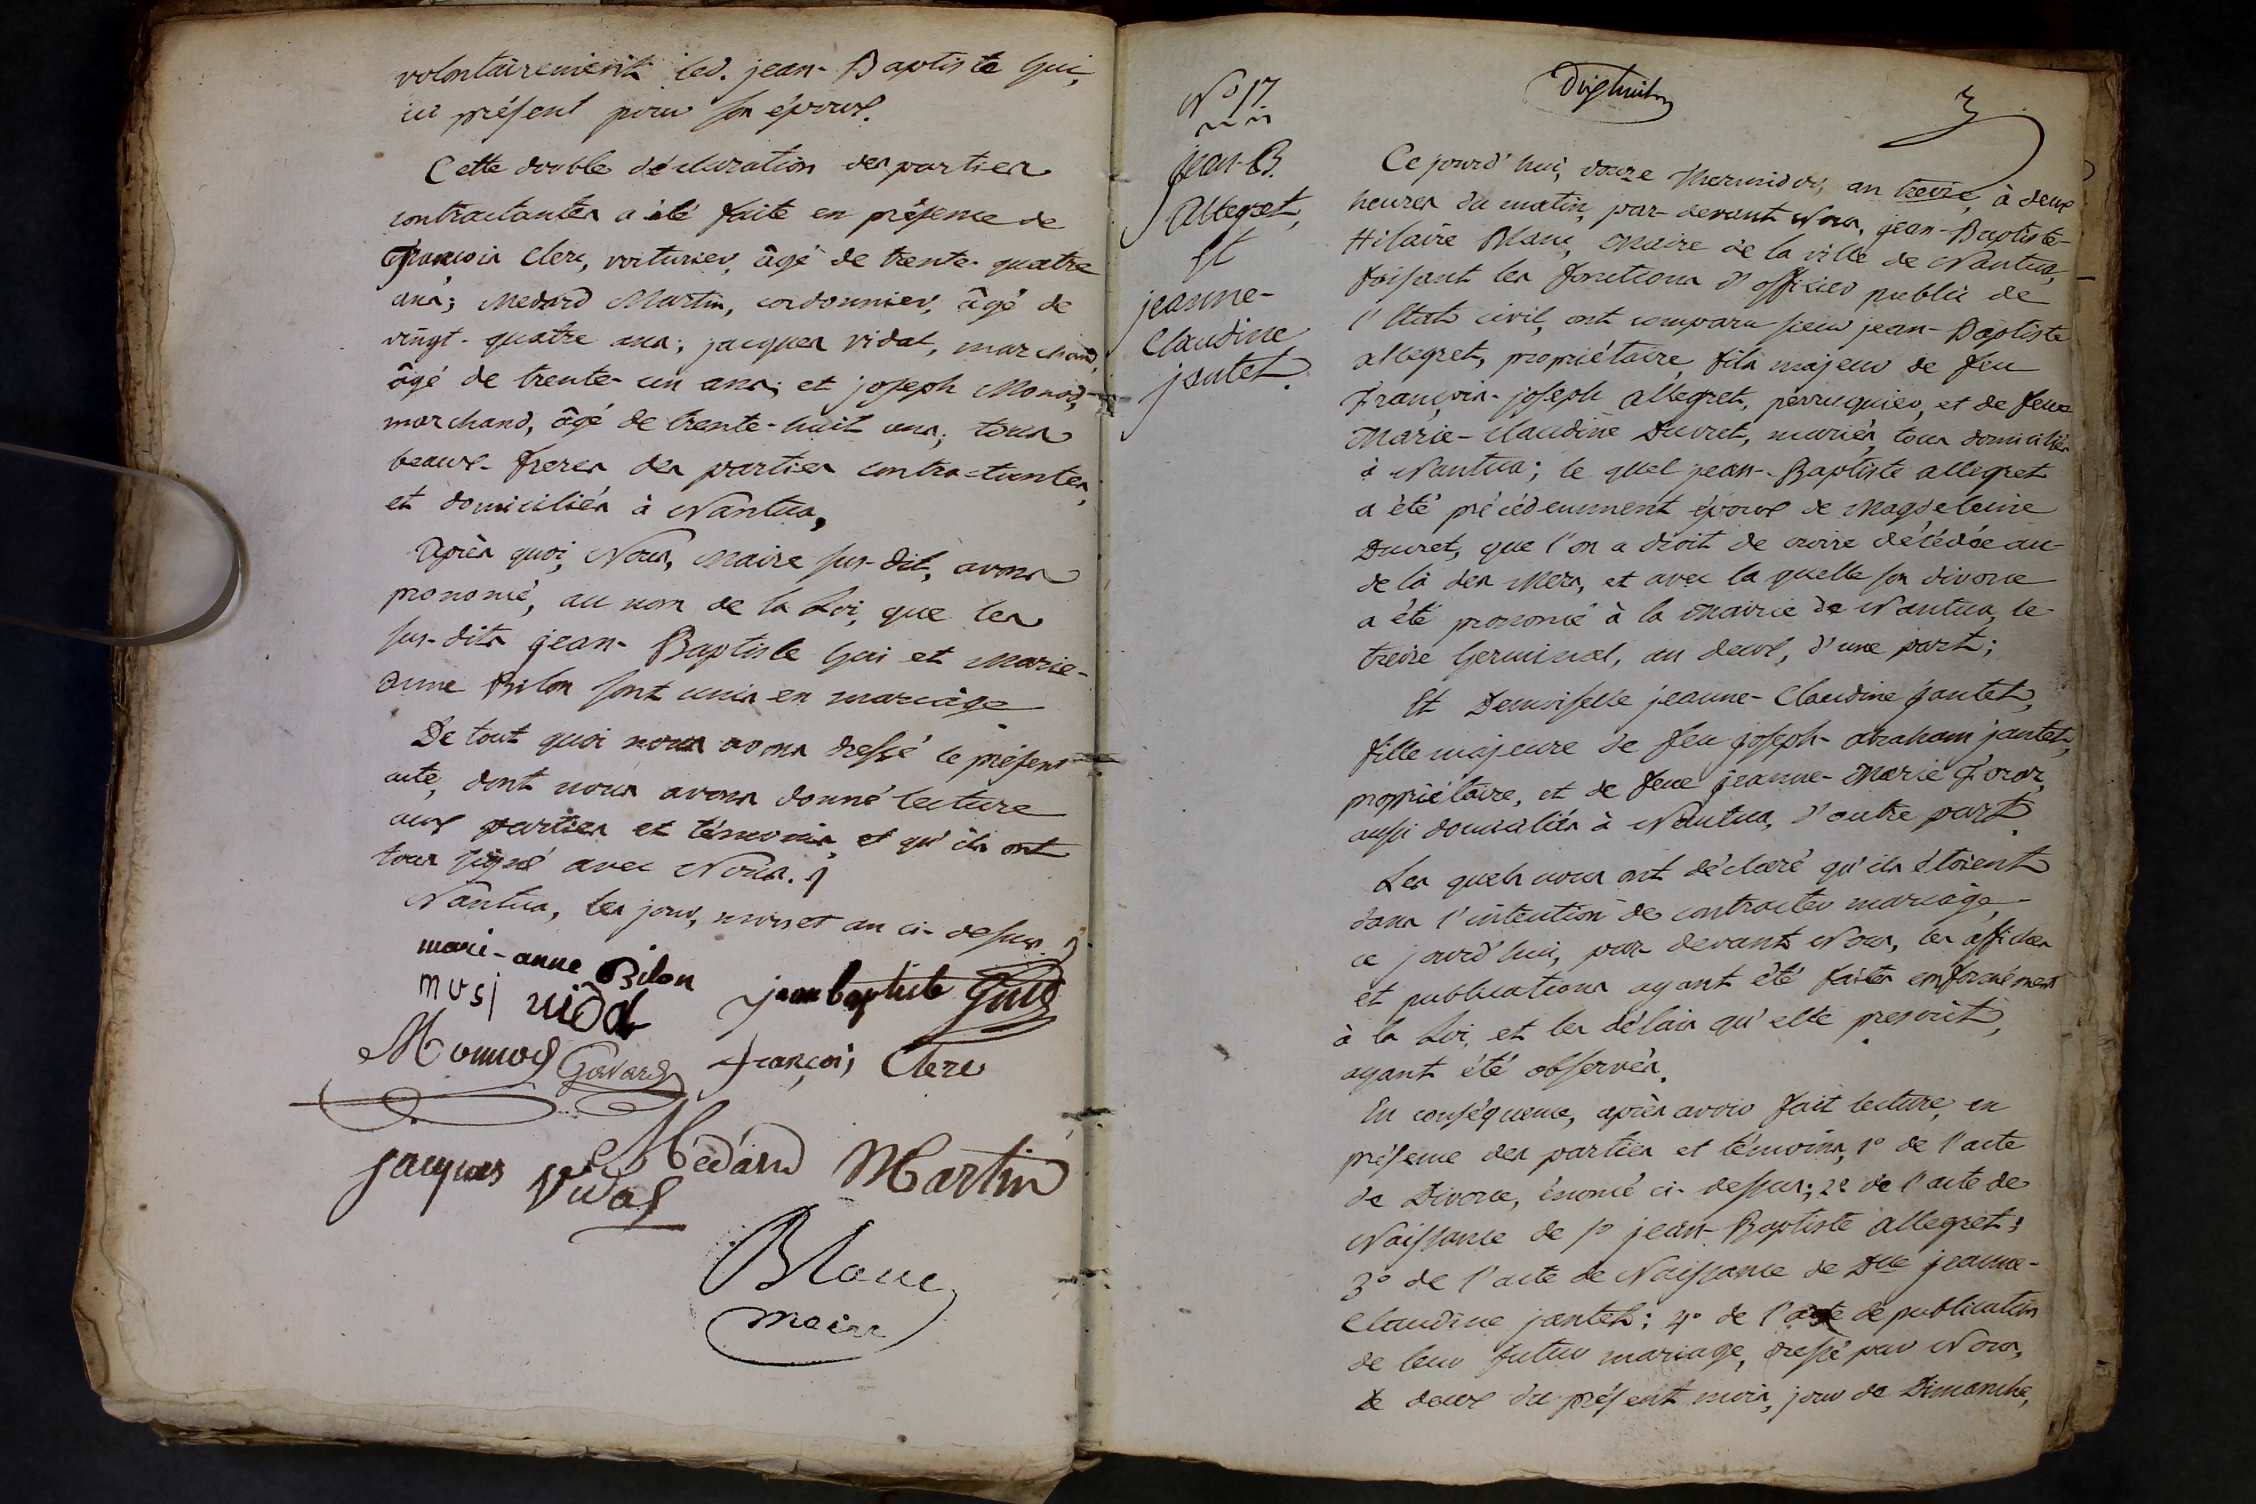 volontairement led. jean-Baptiste Gui,
ici présent pour son époux.
Cette double déclaration des parties
contractantes a été faite en présence de
François Clerc, voiturier, âgé de trente-quatre
ans; Medard Martin, cordonnier, âgé de
vingt-quatre ans; jacques vidal, marchand,
âgé de trente-un ans; et joseph Monod,
marchand, âgé de trente-huit ans; tous
beaux-freres des parties contractantes,
et domiciliés à Nantua,
Après quoi, Nous, Maire sus-dit, avons
prononcé, au nom de la Loi, que les
sus-dits jean-Baptiste Gui et Marie-
anne Bilon sont unis en mariage
De tout quoi nous avons dressé le présent
acte, dont nous avons donné lecture
aux parties et témoins, et qu'ils ont
tous signé avec Nous.
Nantua, les jour, mois et an ci-dessus
mari-anne Bilon
jean baptiste Gui
Monnod Gavard françois Clerc
jacques Vidal Médard Martin
Blanc
maire
Nº 17.
jean-B.
Allegret,
Et
jeanne-
Claudine
jantet.
Dixhuit
3
Ce jourd'hui, douze Thermidor, an treize, à deux
heures du matin, par-devant Nous, jean-Baptiste-
Hilaire Blanc, Maire de la ville de Nantua,
faisant les fonctions d'officier public de
l'Etat civil, ont comparu sieur jean-Baptiste
allegret, propriétaire, fils majeur de feu
François-joseph allegret, perruquier, et de feue
Marie-Claudine Ducret, mariés, tous domiciliés
à Nantua; le quel jean-Baptiste allegret
a été précédemment époux de Magdeleine
Ducret, que l'on a droit de croire décédée au-
de là des Mers, et avec la quelle son divorce
a été prononcé à la Mairie de Nantua, le
treize Germinal, an deux, d'une part;
Et Demoiselle jeanne-Claudine jantet,
fille majeure de feu joseph-abraham jantet,
propriétaire, et de feue jeanne-Marie
aussi domiciliés à Nantua, d'autre part.
Les quels nous ont déclaré qu'ils étoient
dans l'intention de contracter mariage,
ce jourd'hui, par-devant Nous, les affiches
et publications ayant été faites conformément
à la Loi, et les délais qu'elle prescrit,
ayant été observés.
En conséquence, après avoir fait lecture, en
présence des parties et témoins, 1º de l'acte
de Divorce, énoncé ci-dessus; 2º de l'acte de
Naissance de sr jean-Baptiste allegret;
3º de l'acte de Naissance de Dlle jeanne-
Claudine jantet; 4º de l'acte de publication
de leur futur mariage, dressé par Nous,
le deux du présent mois, jour de Dimanche,